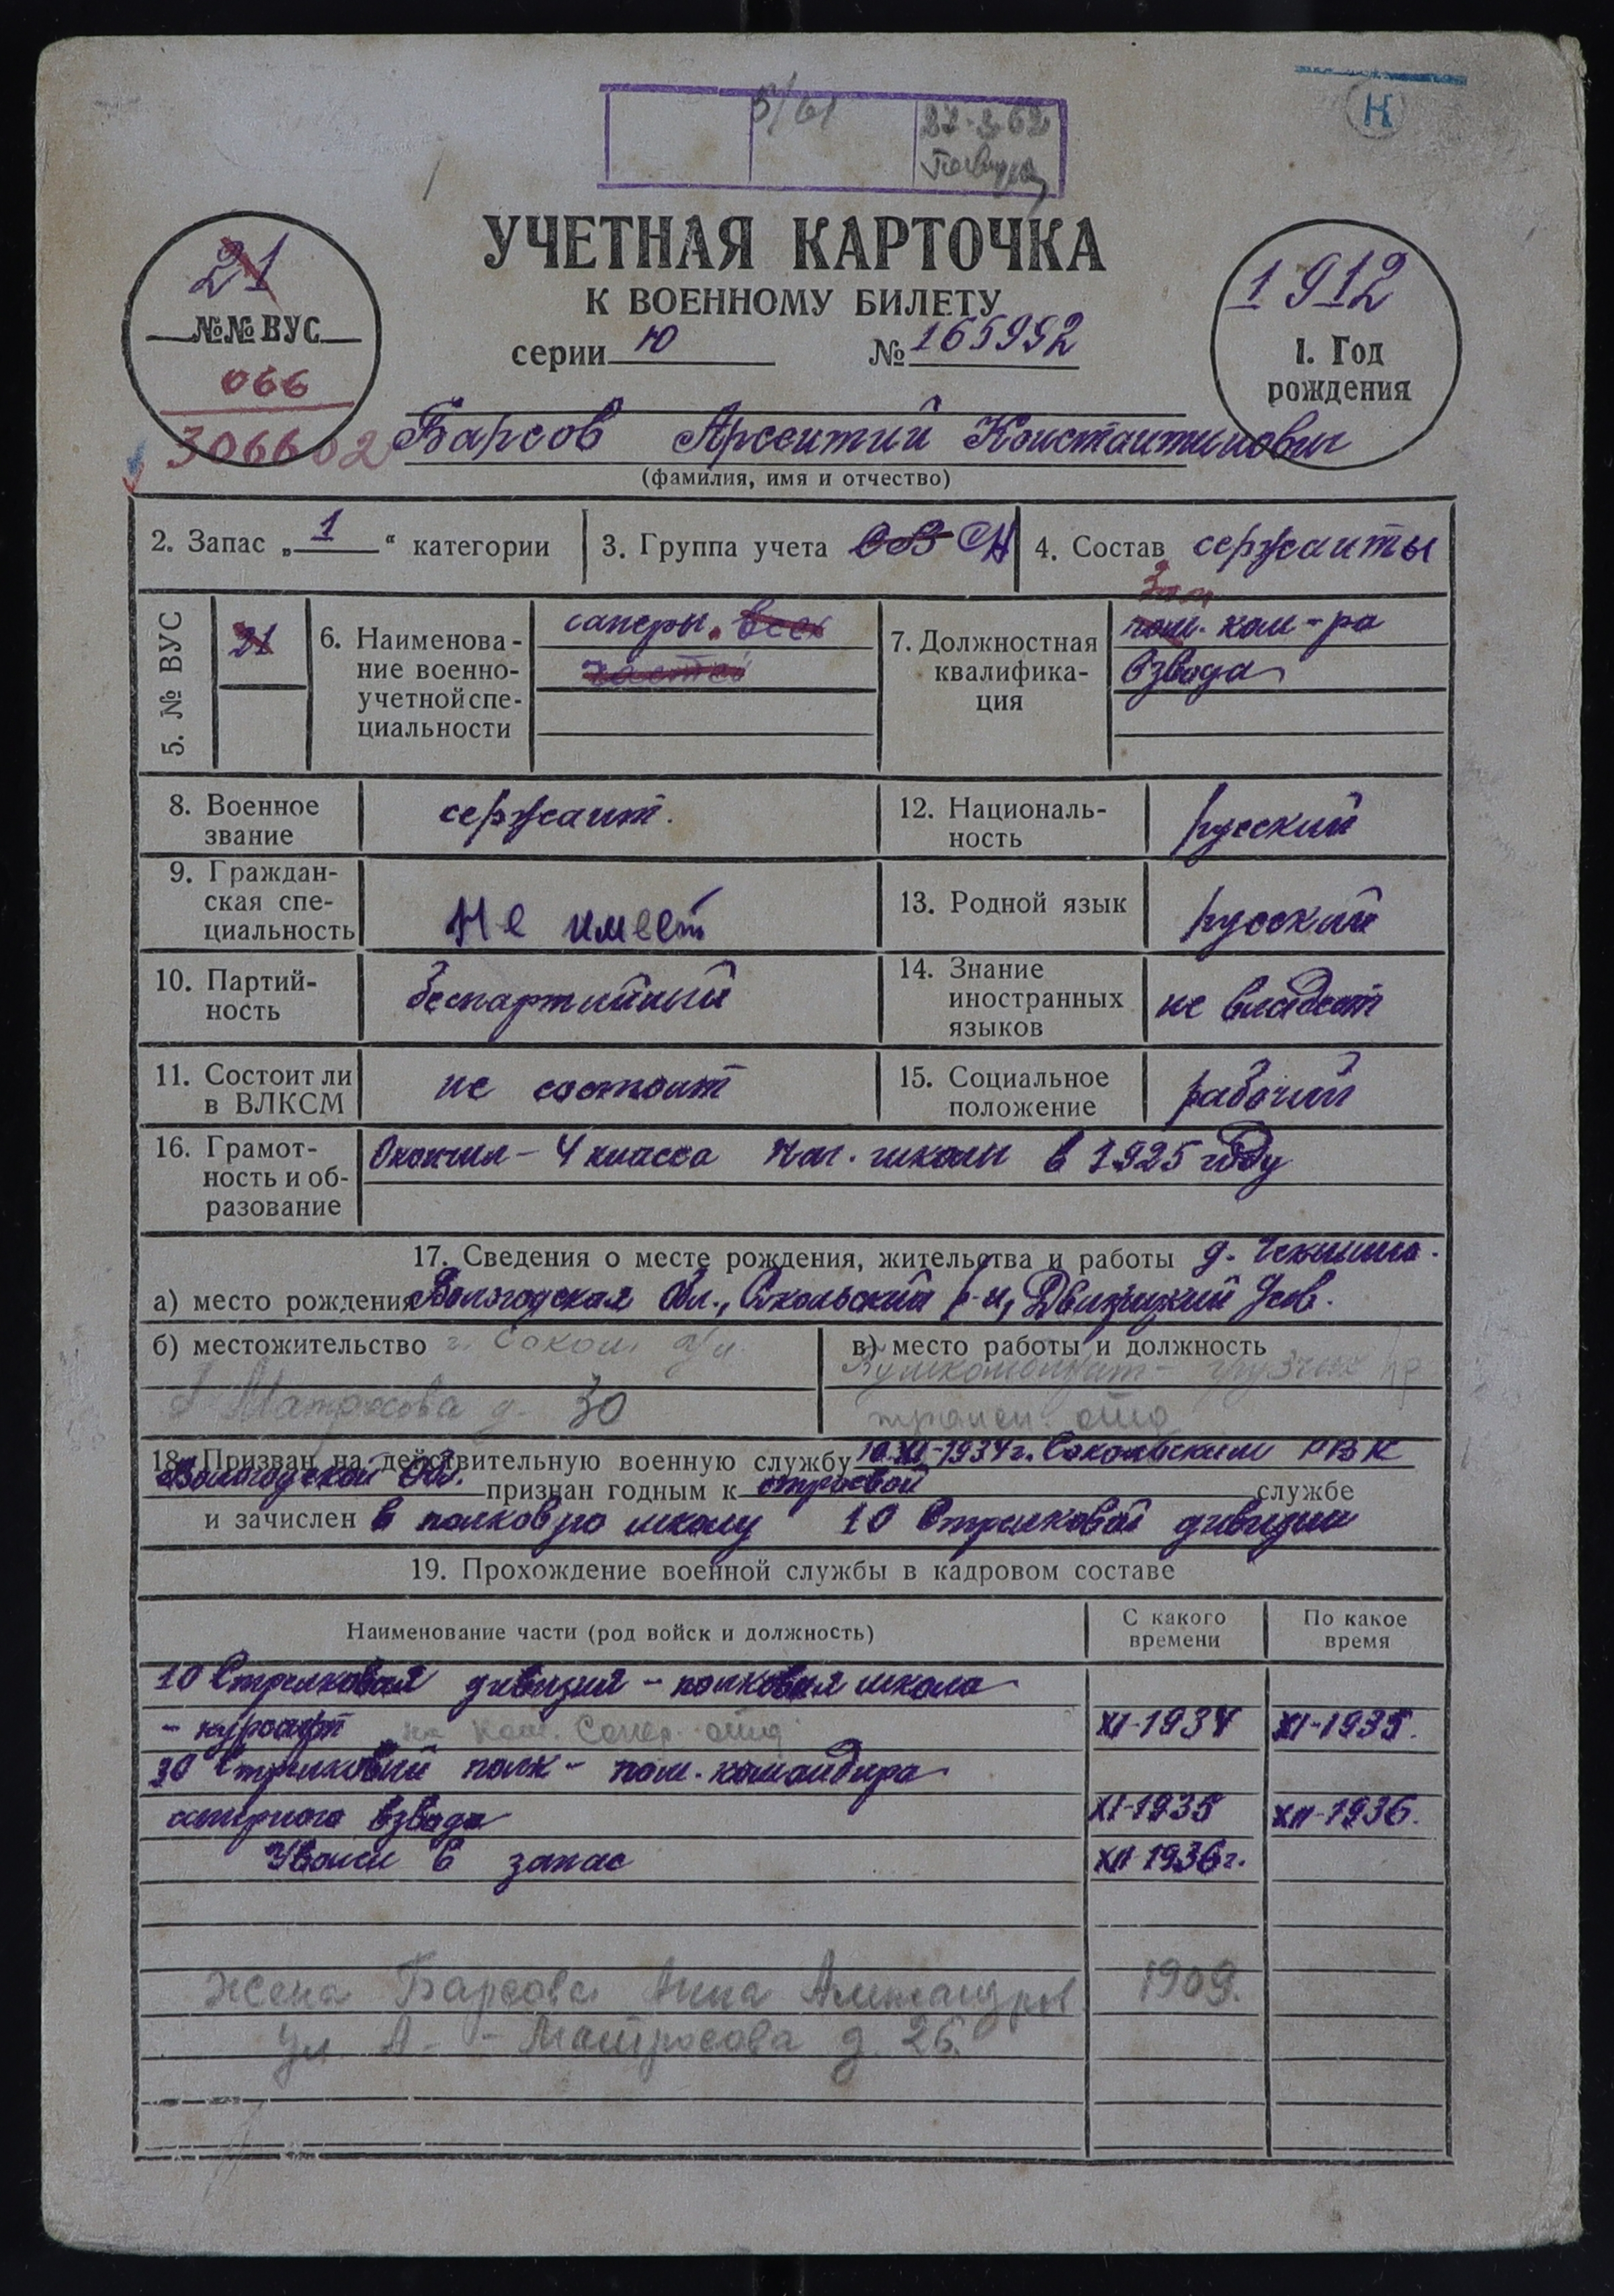 5/61
27-3-62
Н
УЧЕТНАЯ КАРТОЧКА
К ВОЕННОМУ БИЛЕТУ
серии Ю № 165992
21
№№ ВУС
066
306602
1912
1. Год
рождения
Барсов Арсентий Константинович
(фамилия, имя и отчество)
2. Запас „1“ категории
3. Группа учета ОВ СА
4. Состав сержанты
5. № ВУС
21
6. Наименова-
ние военно-
учетной спе-
циальности
саперы всех
частей
7. Должностная
квалифика-
ция
Зам
пом. ком-ра
взвода
8. Военное
звание
сержант.
12. Националь-
ность
русский
9. Граждан-
ская спе-
циальность
Не имеет
13. Родной язык
русский
10. Партий-
ность
беспартийный
14. Знание
иностранных
языков
не владеет
11. Состоит ли
в ВЛКСМ
не состоит
15. Социальное
положение
рабочий
16. Грамот-
ность и об-
разование
Окончил - 4 класса нач. школы в 1925 году
17. Сведения о месте рождения, жительства и работы д.
а) место рождения Вологодская обл., Сокольский р-н, Двиницкий с/сов.
б) местожительство г. Сокол ул.
Матросова д. 30
в) место работы и должность
Бумкомбинат - грузчик
18. Призван на действительную военную службу 10.XI-1934 г. Сокольским РВК
Вологодской обл. признан годным к строевой службе
и зачислен в полковую школу 10 Стрелковой дивизии
19. Прохождение военной службы в кадровом составе
Наименование части (род войск и должность)
С какого
времени
По какое
время
10 Стрелковая дивизия - полковая школа
- курсант на ком. Сапер. отд XI-1934 XI-1935.
30 Стрелковый полк - пом. командира
саперного взвода XI-1935 XII-1936.
Уволен в запас XII-1936 г.
жена Барсова Анна Александров 1909.
ул. А. - Матросова д. 26.